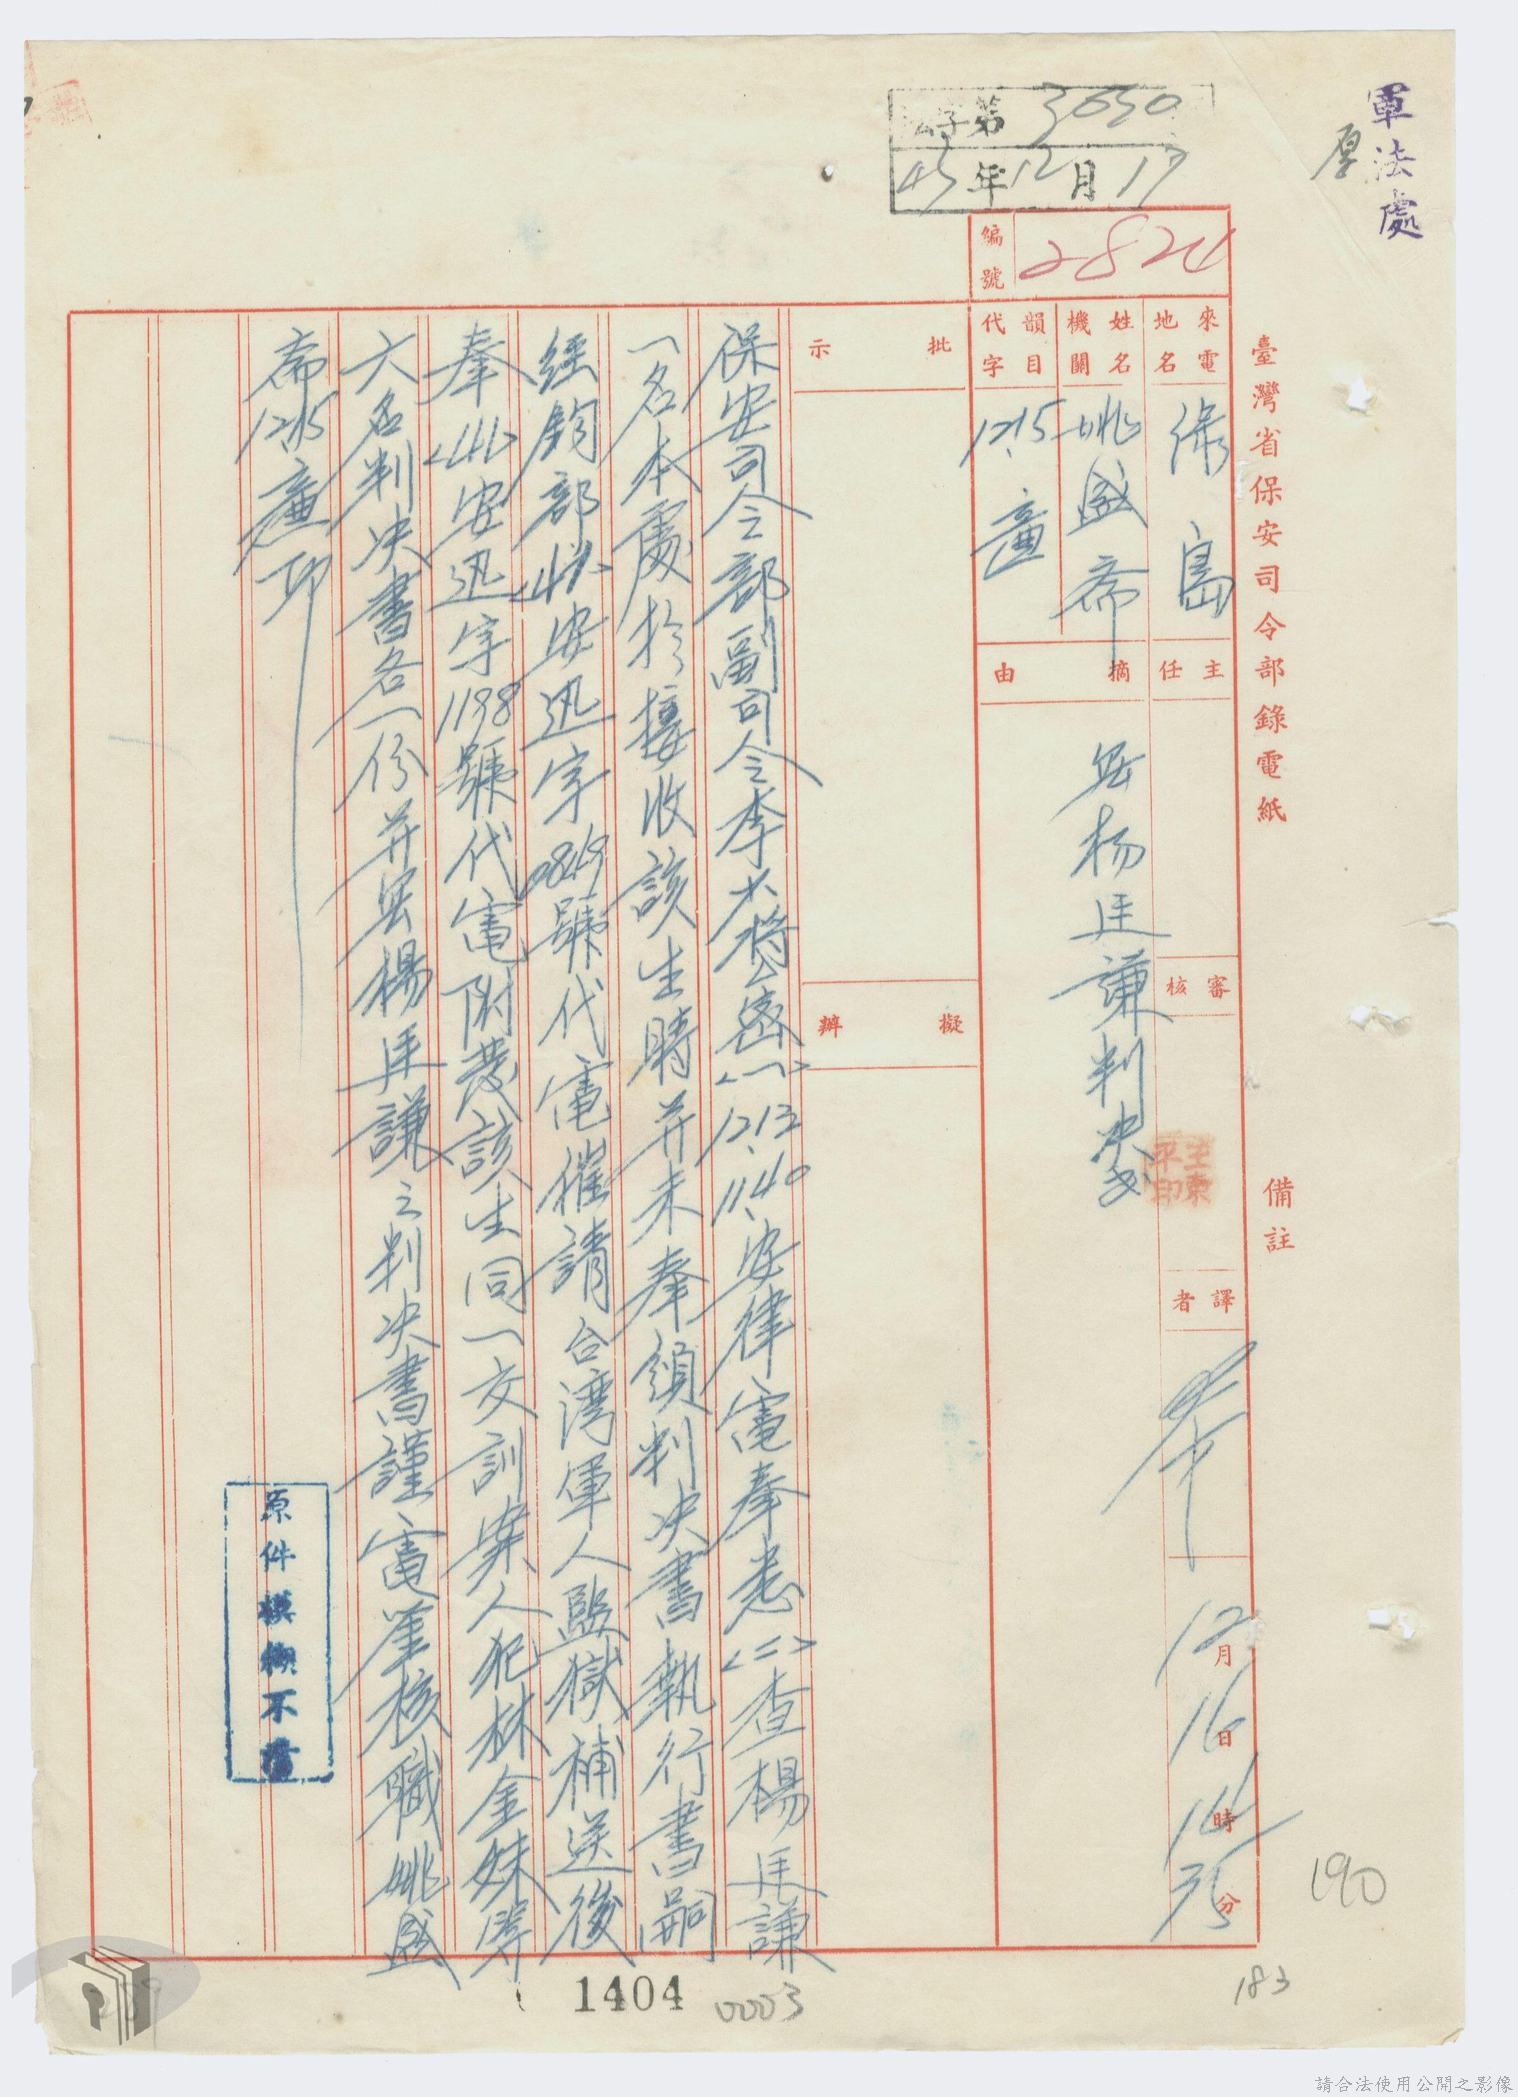 軍法處
厚
法字第3650
45年12月17
臺灣省保安司令部錄電紙
備註
編號 2824
來電地名 綠島
姓名機關 姚盛齋
韻目代字 12.15
主任
摘由 無楊廷謙判決書
審核
王東平印
譯者
12月16日14時35分
批示
擬辦
保安司令部副司令李大將公密<一>12.13 11.40安律電奉悉<二>查楊廷謙
一名本處於接收該生時并未奉頒判決書執行書嗣
經鈞部安迅字0849號代電催請台湾軍人監獄補送後
奉<44>安迅字1198號代電附發該生同一交訓案人犯林金妹等
六名判決書各一份并無楊廷謙之判決書謹電鑒核職姚盛
齋12.15印
原件模糊不清
1404
0003
190
183
請合法使用公開之影像